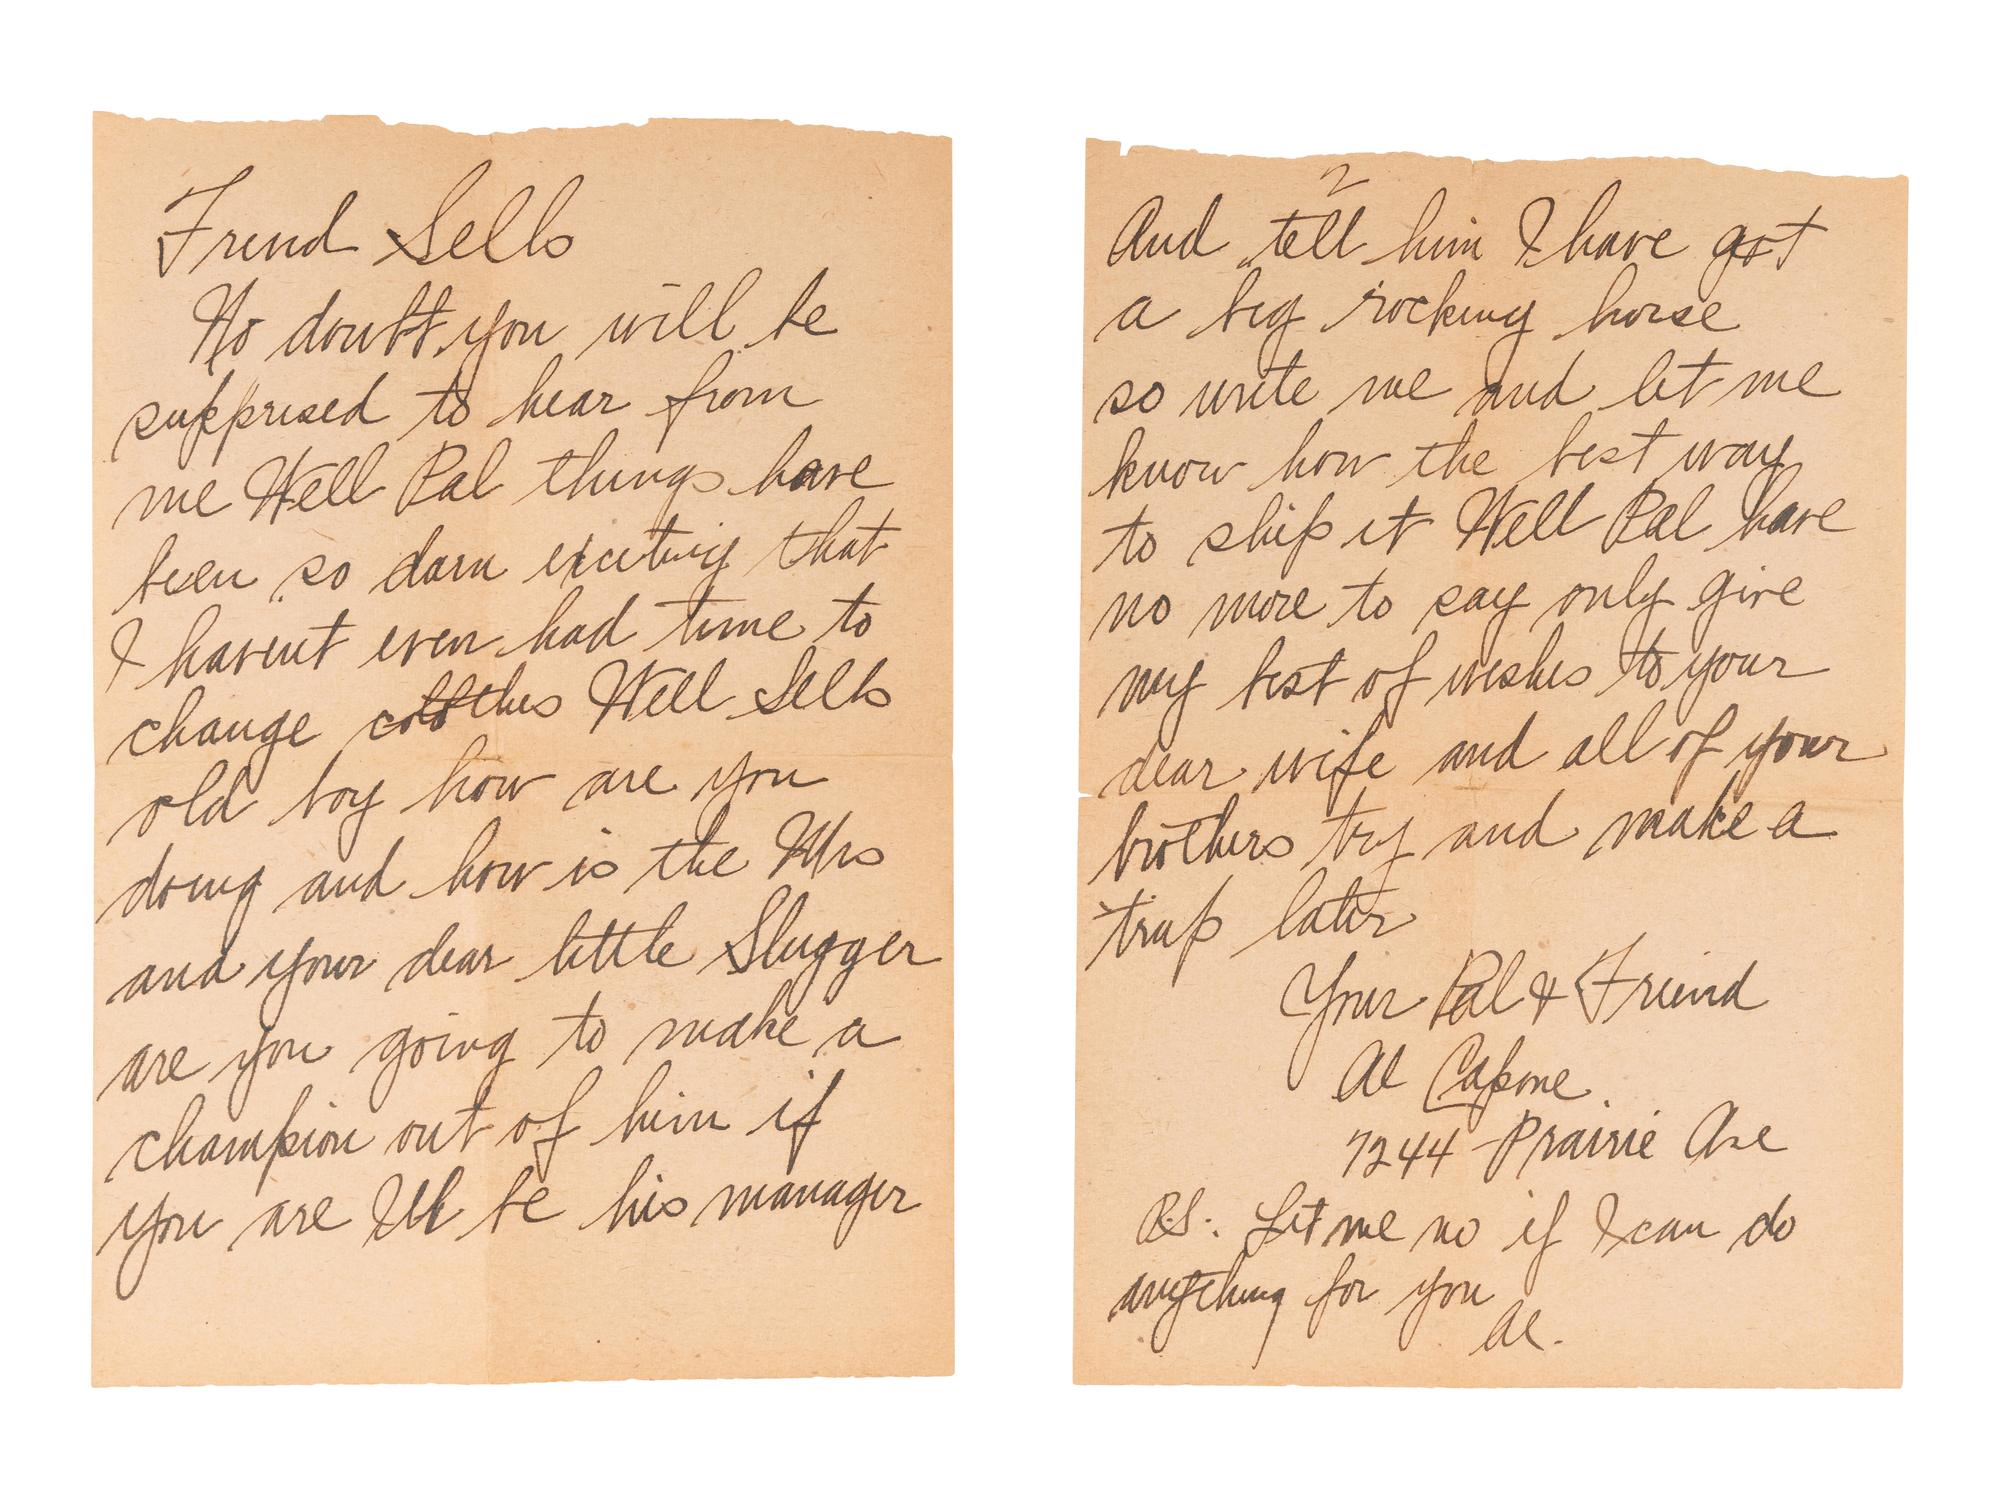 Frend Sells
No doubt you will be
supprised to hear from
me Well Pal things have
been so darn exciting that
I havent even had time to
change clothes Well Sells
old boy how are you
doing and how is the Mrs
and your dear little Slugger
are you going to make a
champion out of him if
you are Ill be his manager
2
And tell him I have got
a big rocking horse
so write me and let me
know how the best way
to ship it Well Pal have
no more to say only give
my best of wishes to your
dear wife and all of your
brothers try and make a
trap later
Your Pal & Friend
Al Capone.
7244 Prairie Ave
P.S. Let me no if I can do
anything for you
Al.